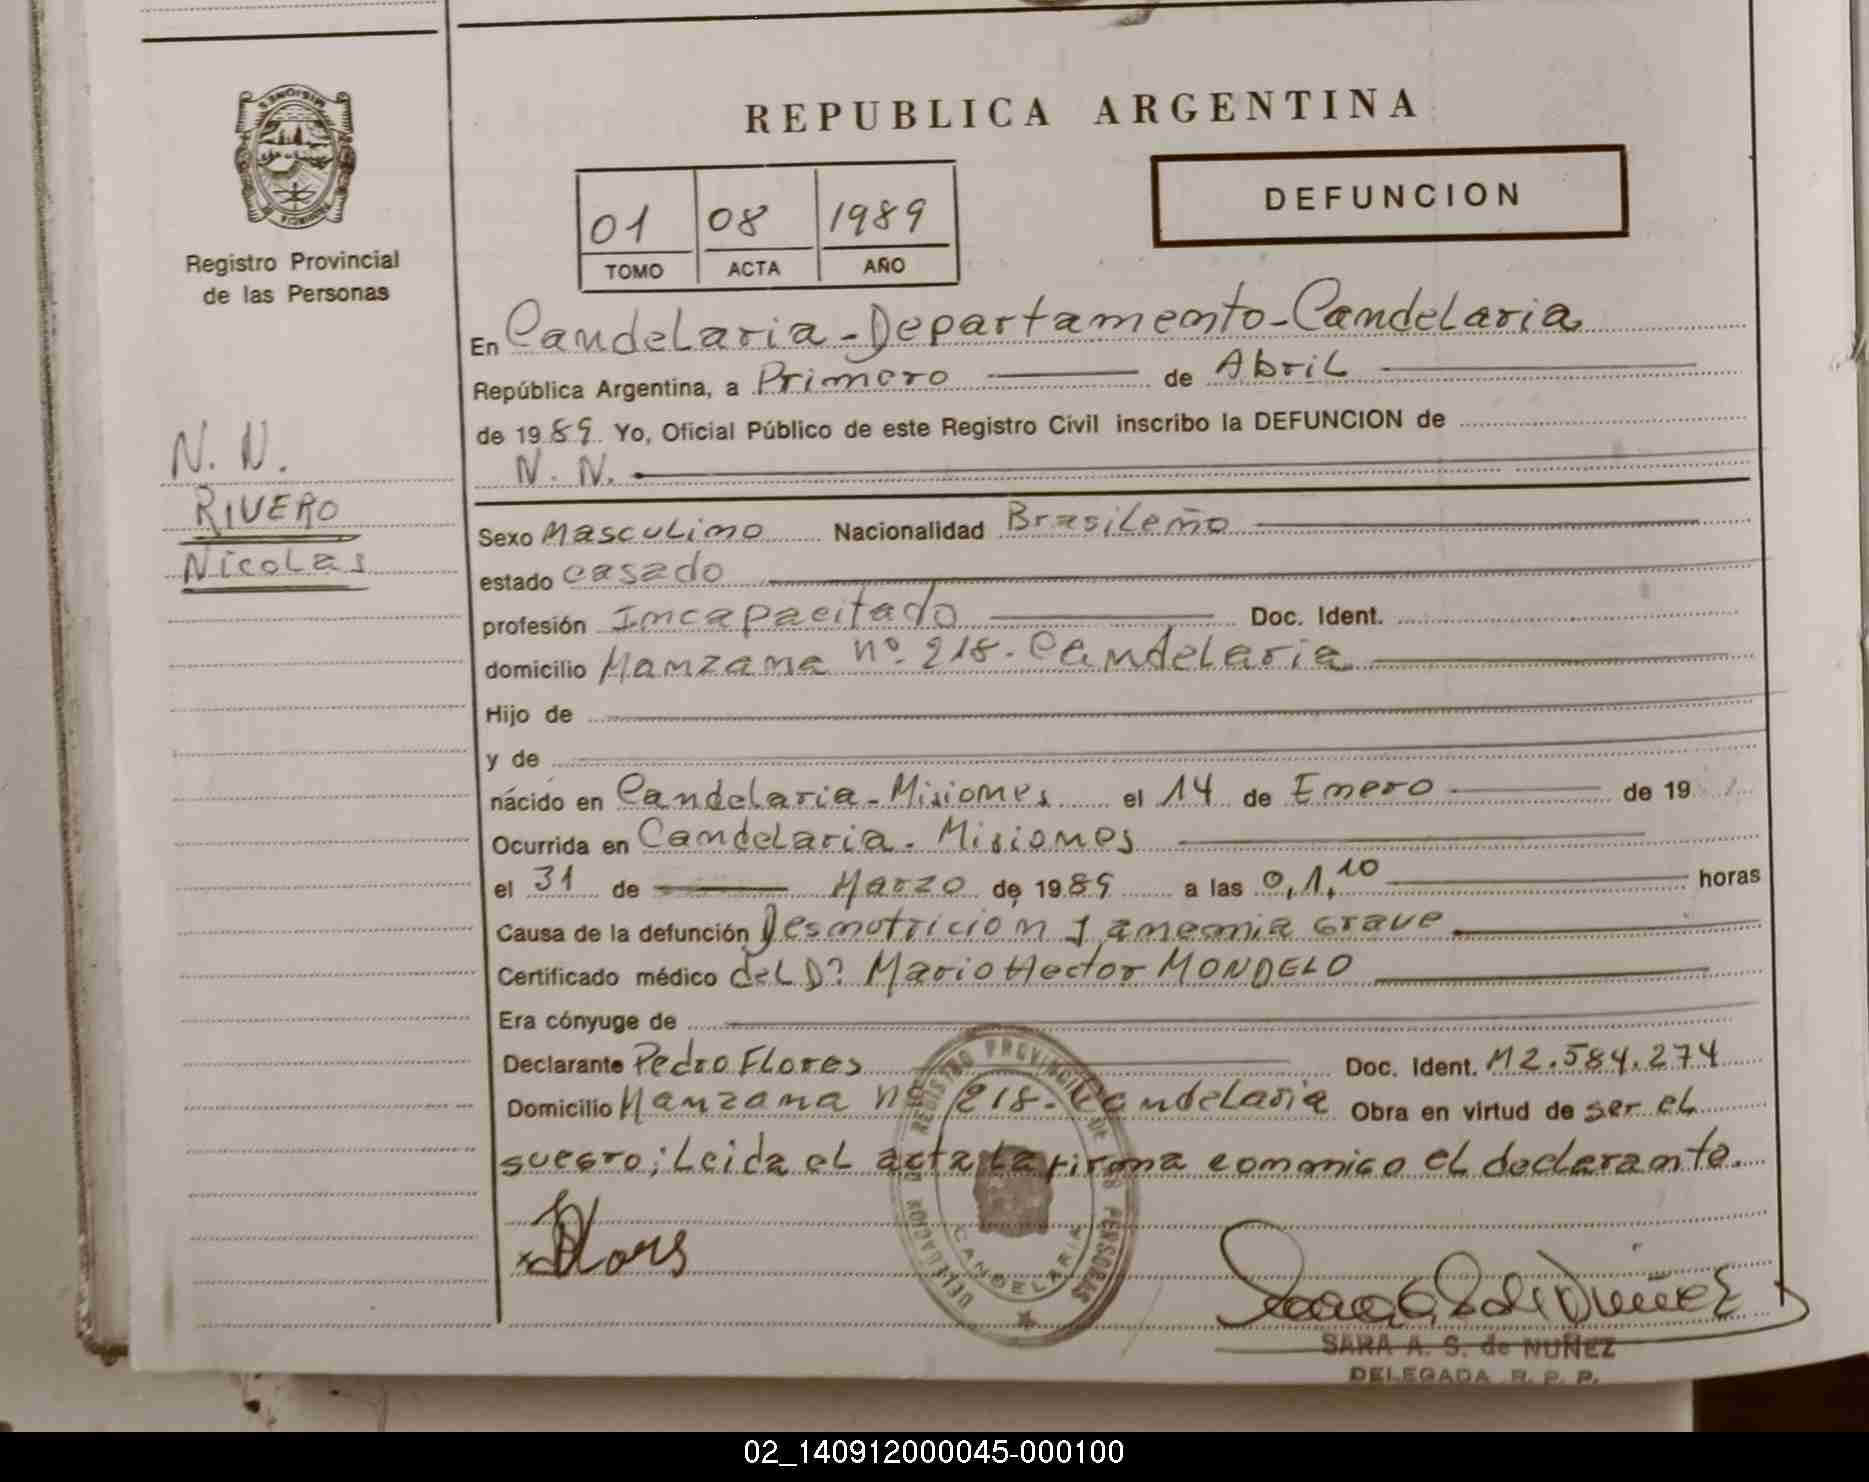 REPUBLICA ARGENTINA
01 08 1989
TOMO ACTA AÑO
DEFUNCION
MISIONES
PROVINCIA DE
Registro Provincial
de las Personas
N. N.
RIVERO
Nicolas
En Candelaria - Departamento - Candelaria
República Argentina, a Primero de Abril
de 1989 Yo, Oficial Público de este Registro Civil inscribo la DEFUNCION de
N. N.
Sexo Masculino Nacionalidad Brasileño
estado casado
profesión Incapacitado Doc. Ident.
domicilio Manzana nº 218. Candelaria
Hijo de
y de
nácido en Candelaria - Misiones el 14 de Enero de 19
Ocurrida en Candelaria - Misiones
el 31 de Marzo de 1989 a las 0,1,10 horas
Causa de la defunción Desnutricion y anemia Grave
Certificado médico del Dr Mario Hector MONDELO
Era cónyuge de
Declarante Pedro Flores Doc. Ident. M 2.584.274
Domicilio Manzana nº 218. Candelaria Obra en virtud de ser el
suegro; Leida el acta La firma conmigo el declarante.
DELEGACION DEL REGISTRO PROVINCIAL DE LAS PERSONAS
CANDELARIA
SARA A. S. de NUÑEZ
DELEGADA R. P. P.
02_140912000045-000100